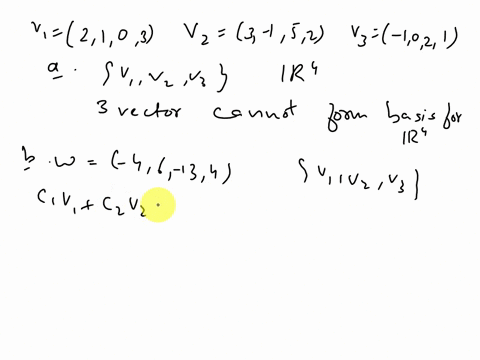 v₁=(2,1,0,3) V₂=(3,-1,5,2) V₃=(-1,0,2,1)
a. {V₁,V₂,V₃} IR⁴
3 vector cannot form basis for
IR⁴
b. w = (-4,6,-13,4) {V₁,V₂,V₃}
C₁V₁+C₂V₂